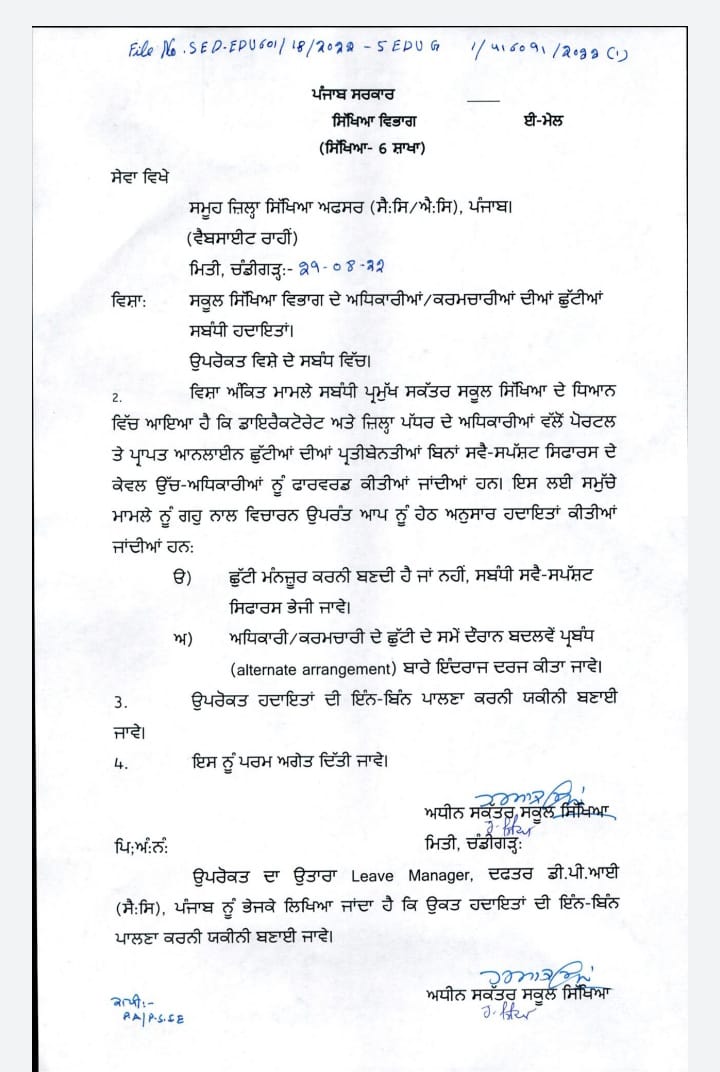 File No. SED-EDU601/18/2022-5EDU6 1/416091/2022(1)
ਪੰਜਾਬ ਸਰਕਾਰ
ਸਿੱਖਿਆ ਵਿਭਾਗ ਈ-ਮੇਲ
(ਸਿੱਖਿਆ- 6 ਸ਼ਾਖਾ)
ਸੇਵਾ ਵਿਖੇ
ਸਮੂਹ ਜ਼ਿਲ੍ਹਾ ਸਿੱਖਿਆ ਅਫਸਰ (ਸੈ:ਸਿ/ਐ:ਸਿ), ਪੰਜਾਬ।
(ਵੈਬਸਾਈਟ ਰਾਹੀਂ)
ਮਿਤੀ, ਚੰਡੀਗੜ੍ਹ:- 29-08-22
ਵਿਸ਼ਾ: ਸਕੂਲ ਸਿੱਖਿਆ ਵਿਭਾਗ ਦੇ ਅਧਿਕਾਰੀਆਂ/ਕਰਮਚਾਰੀਆਂ ਦੀਆਂ ਛੁੱਟੀਆਂ
ਸਬੰਧੀ ਹਦਾਇਤਾਂ।
ਉਪਰੋਕਤ ਵਿਸ਼ੇ ਦੇ ਸਬੰਧ ਵਿੱਚ।
2. ਵਿਸ਼ਾ ਅੰਕਿਤ ਮਾਮਲੇ ਸਬੰਧੀ ਪ੍ਰਮੁੱਖ ਸਕੱਤਰ ਸਕੂਲ ਸਿੱਖਿਆ ਦੇ ਧਿਆਨ
ਵਿੱਚ ਆਇਆ ਹੈ ਕਿ ਡਾਇਰੈਕਟੋਰੇਟ ਅਤੇ ਜ਼ਿਲ੍ਹਾ ਪੱਧਰ ਦੇ ਅਧਿਕਾਰੀਆਂ ਵੱਲੋਂ ਪੋਰਟਲ
ਤੇ ਪ੍ਰਾਪਤ ਆਨਲਾਈਨ ਛੁੱਟੀਆਂ ਦੀਆਂ ਪ੍ਰਤੀਬੇਨਤੀਆਂ ਬਿਨਾਂ ਸਵੈ-ਸਪੱਸ਼ਟ ਸਿਫਾਰਸ ਦੇ
ਕੇਵਲ ਉੱਚ-ਅਧਿਕਾਰੀਆਂ ਨੂੰ ਫਾਰਵਰਡ ਕੀਤੀਆਂ ਜਾਂਦੀਆਂ ਹਨ। ਇਸ ਲਈ ਸਮੁੱਚੇ
ਮਾਮਲੇ ਨੂੰ ਗਹੁ ਨਾਲ ਵਿਚਾਰਨ ਉਪਰੰਤ ਆਪ ਨੂੰ ਹੇਠ ਅਨੁਸਾਰ ਹਦਾਇਤਾਂ ਕੀਤੀਆਂ
ਜਾਂਦੀਆਂ ਹਨ:
ੳ) ਛੁੱਟੀ ਮੰਨਜ਼ੂਰ ਕਰਨੀ ਬਣਦੀ ਹੈ ਜਾਂ ਨਹੀਂ, ਸਬੰਧੀ ਸਵੈ-ਸਪੱਸ਼ਟ
ਸਿਫਾਰਸ ਭੇਜੀ ਜਾਵੇ।
ਅ) ਅਧਿਕਾਰੀ/ਕਰਮਚਾਰੀ ਦੇ ਛੁੱਟੀ ਦੇ ਸਮੇਂ ਦੌਰਾਨ ਬਦਲਵੇਂ ਪ੍ਰਬੰਧ
(alternate arrangement) ਬਾਰੇ ਇੰਦਰਾਜ ਦਰਜ ਕੀਤਾ ਜਾਵੇ।
3. ਉਪਰੋਕਤ ਹਦਾਇਤਾਂ ਦੀ ਇੰਨ-ਬਿੰਨ ਪਾਲਣਾ ਕਰਨੀ ਯਕੀਨੀ ਬਣਾਈ
ਜਾਵੇ।
4. ਇਸ ਨੂੰ ਪਰਮ ਅਗੇਤ ਦਿੱਤੀ ਜਾਵੇ।
ਅਧੀਨ ਸਕੱਤਰ ਸਕੂਲ ਸਿੱਖਿਆ
ਪਿ;ਅੰ:ਨੰ: ਮਿਤੀ, ਚੰਡੀਗੜ੍ਹ:
ਉਪਰੋਕਤ ਦਾ ਉਤਾਰਾ Leave Manager, ਦਫਤਰ ਡੀ.ਪੀ.ਆਈ
(ਸੈ:ਸਿ), ਪੰਜਾਬ ਨੂੰ ਭੇਜਕੇ ਲਿਖਿਆ ਜਾਂਦਾ ਹੈ ਕਿ ਉਕਤ ਹਦਾਇਤਾਂ ਦੀ ਇੰਨ-ਬਿੰਨ
ਪਾਲਣਾ ਕਰਨੀ ਯਕੀਨੀ ਬਣਾਈ ਜਾਵੇ।
ਅਧੀਨ ਸਕੱਤਰ ਸਕੂਲ ਸਿੱਖਿਆ
ਕਾਪੀ:-
PA/P.S.SE